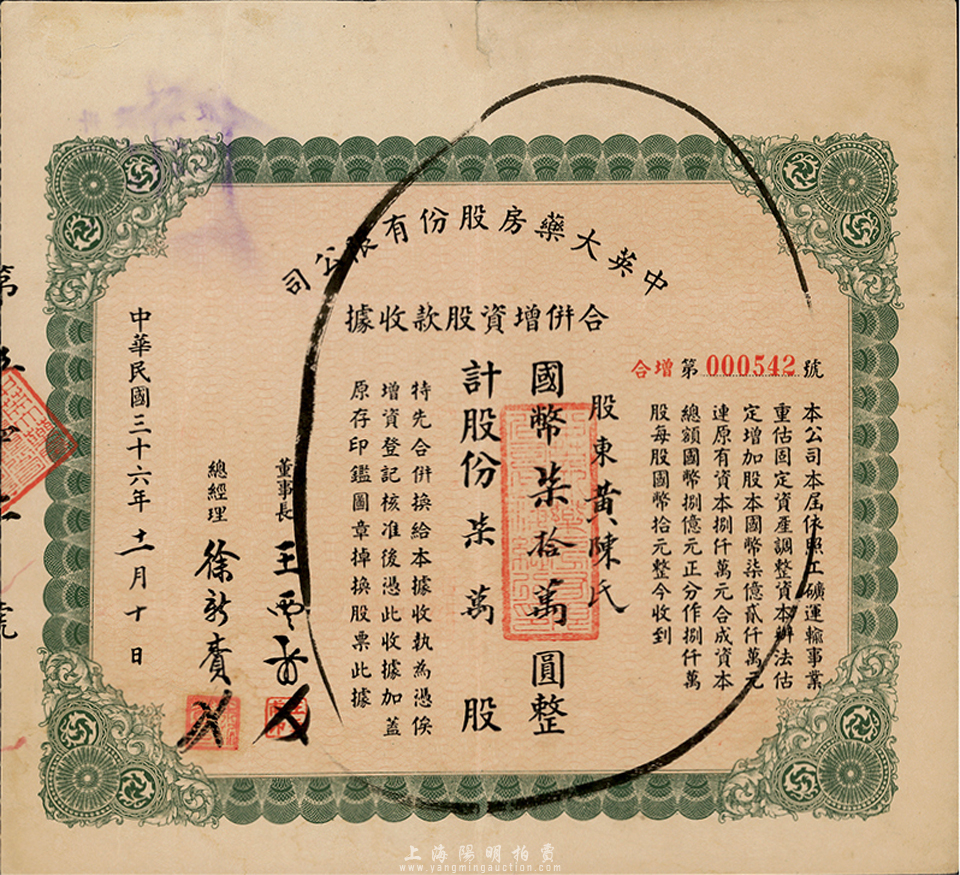 中英大藥房股份有限公司
合併增資股款收據
增合 第 000542 號
本公司本屆依照工礦運輸事業
重估固定資產調整資本辦法估
定增加股本國幣柒億貳仟萬元
連原有資本捌仟萬元合成資本
總額國幣捌億元正分作捌仟萬
股每股國幣拾元整今收到
股東 黃陳氏
國幣 柒拾萬 圓整
計股份 柒萬 股
特先合併換給本據收執為憑俟
增資登記核准後憑此收據加蓋
原存印鑑圖章掉換股票此據
董事長
總經理 徐新賚
中華民國三十六年十一月十日
上海陽明拍賣
www.yangmingauction.com